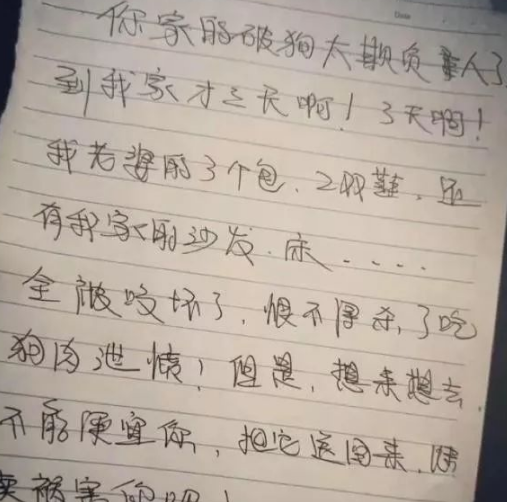 你家的破狗太欺负人了
到我家才三天啊！3天啊！
我老婆的3个包、2双鞋、还
有我家的沙发.床.....
全被咬坏了，恨不得杀了吃
狗肉泄愤！但是，想来想去，
不能便宜你，把它送回来，继
续祸害你吧！